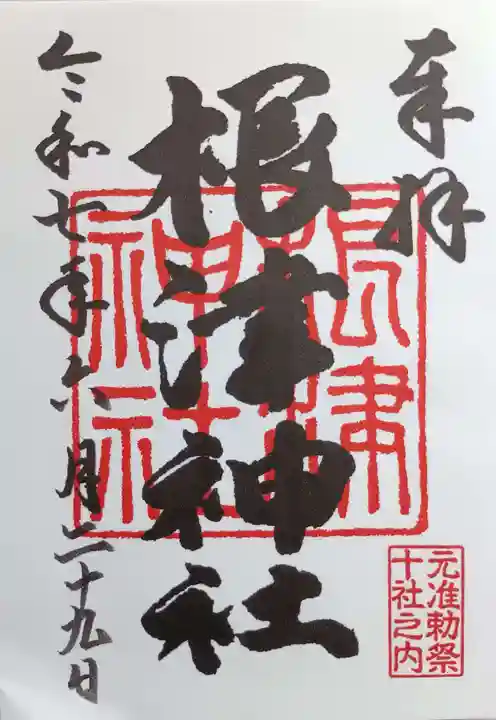 奉拝
根津神社
根津神社
元准勅祭
十社之内
令和七年六月二十九日